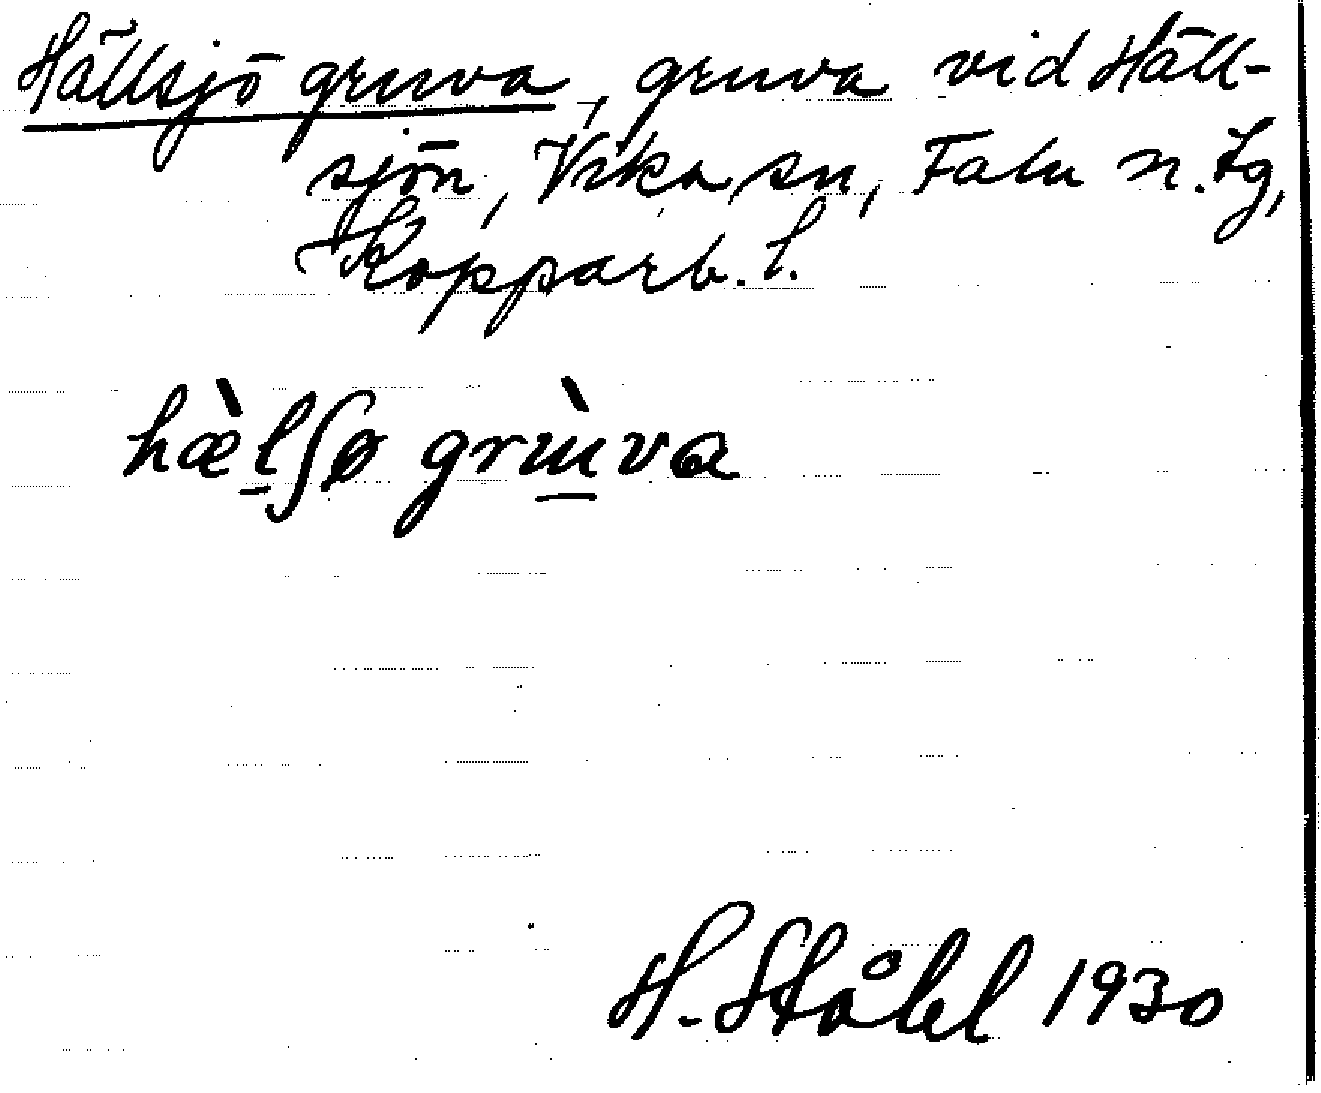 Hällsjö gruva, gruva vid Häll-
sjön, Vika sn, Falu n. tg,
Kopparb. l.
hæ̀lʃø grɯ̀va
H. Ståhl 1930